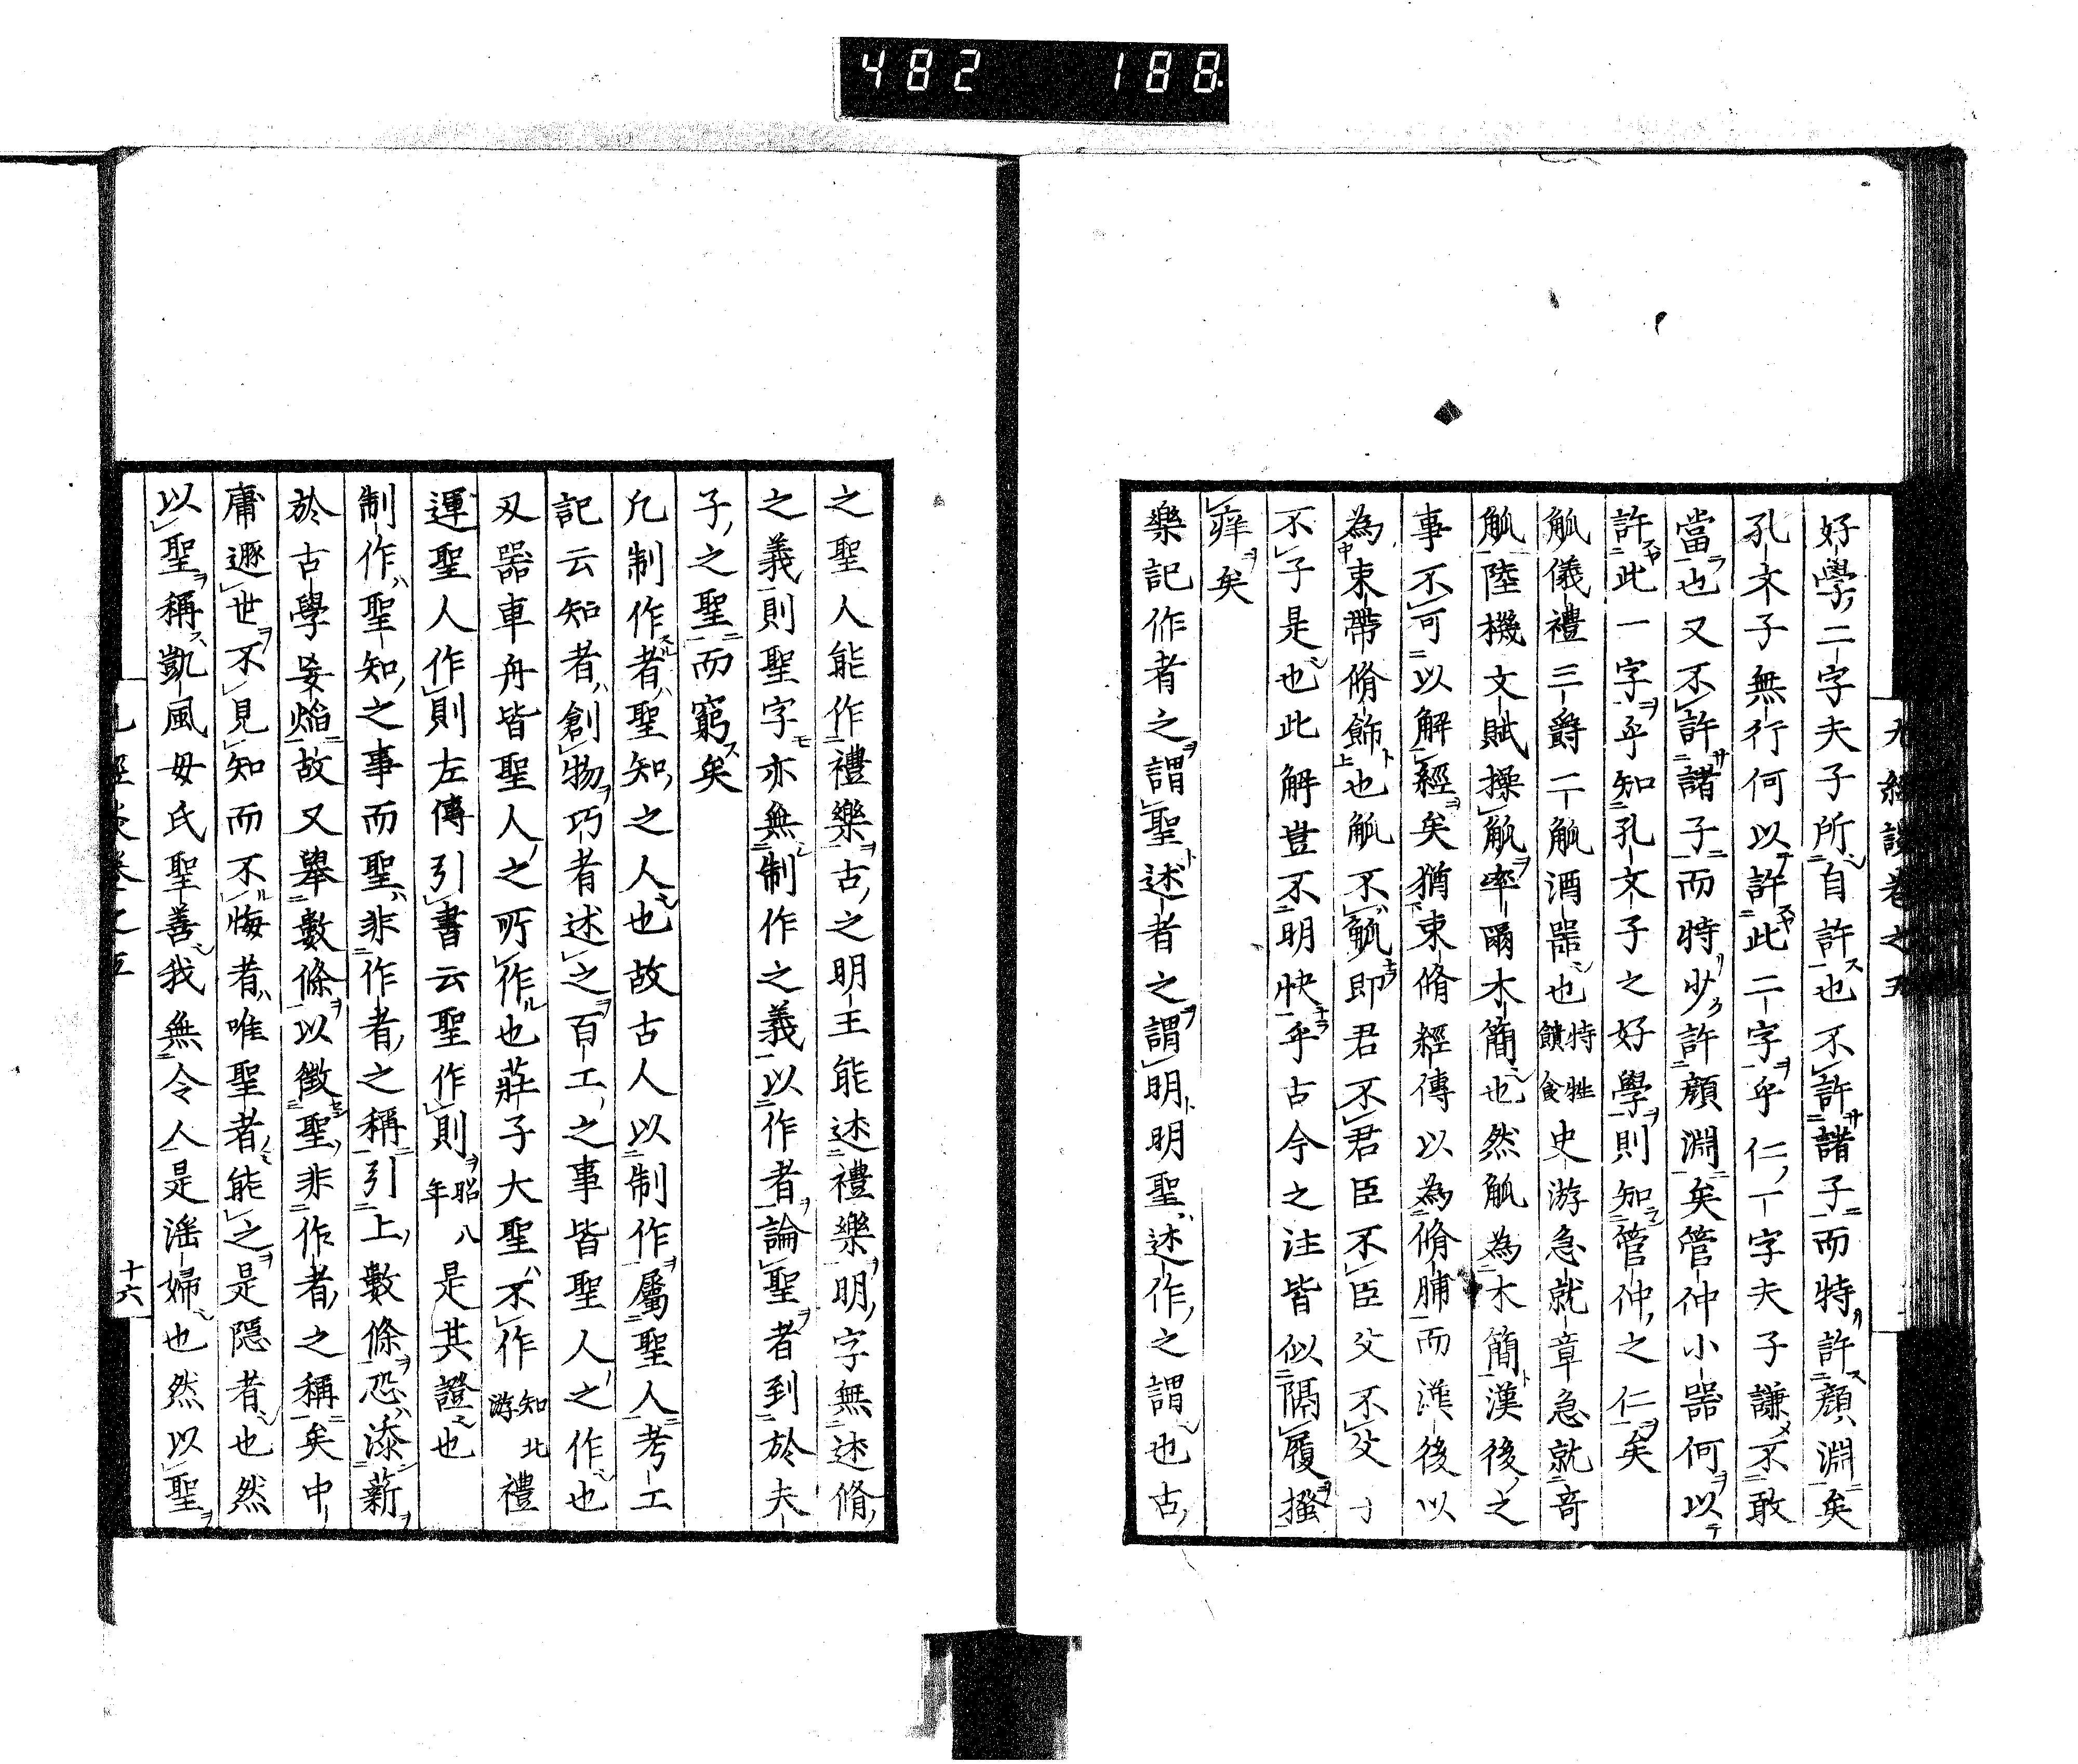 482 188
九經談卷之五
好學二字夫子所自許也不許諸子而特許顏淵矣
孔文子無行何以許此二字乎仁一字夫子謙不敢
當也又不許諸子而特少許顏淵矣管仲小器何以
許此一字乎知孔文子之好學則知管仲之仁矣
觚儀禮三爵二觚酒器也特牲饋食史游急就章急就奇
觚陸機文賦操觚率爾木簡也然觚為木簡漢後之
事不可以解經矣猶束脩經傳以為脩脯而漢後以
為束帶脩飾也觚不觚即君不君臣不臣父不父子
不子是也此解豈不明快乎古今之注皆似隔履搔
癢矣
樂記作者之謂聖述者之謂明明聖述作之謂也古
之聖人能作禮樂古之明王能述禮樂明字無述脩
之義則聖字亦無制作之義以作者論聖者到於夫
子之聖而窮矣
凡制作者聖知之人也故古人以制作屬聖人考工
記云知者創物巧者述之百工之事皆聖人之作也
又器車舟皆聖人之所作也莊子大聖不作知北游禮
運聖人作則左傳引書云聖作則昭八年是其證也
制作聖知之事而聖非作者之稱引上數條恐添薪
於古學妄焰故又舉數條以徵聖非作者之稱矣中
庸遯世不見知而不悔者唯聖者能之是隱者也然
以聖稱凱風母氏聖善我無令人是淫婦也然以聖
九經談卷之五
十六